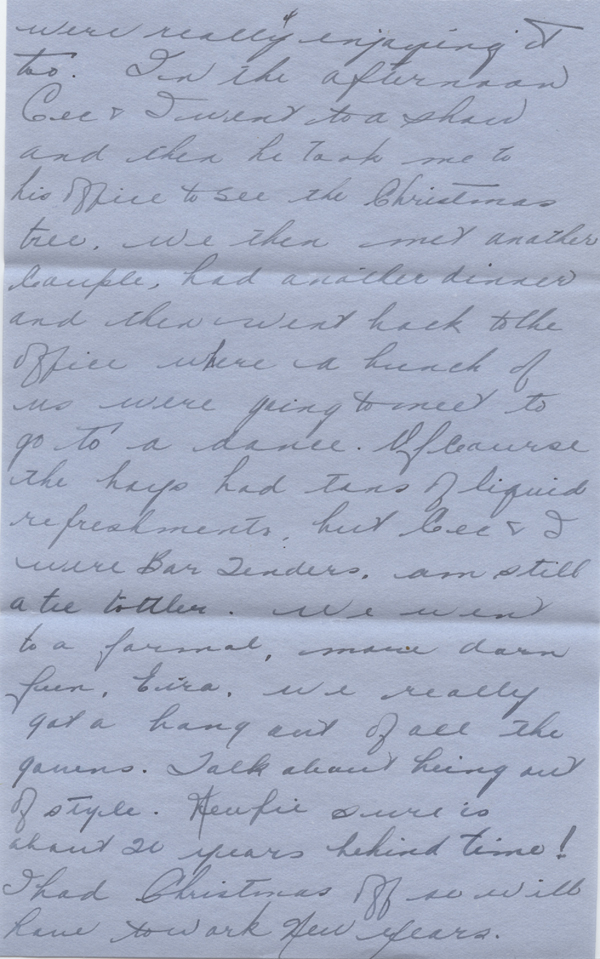 were really enjoying it
too. In the afternoon
Cec & I went to a show
and then he took me to
his office to see the Christmas
tree. We then met another
couple, had another dinner
and then went back to the
office where a bunch of
us were going to meet to
go to a dance. Of course
the boys had tons of liquid
refreshments, but Cec & I
were Bar Tenders, am still
a tee tottler. We went
to a formal, more darn
fun, Eira. We really
got a bang out of all the
gowns. Talk about being out
of style. Newfie sure is
about 20 years behind time!
I had Christmas off so will
have to work New Years.